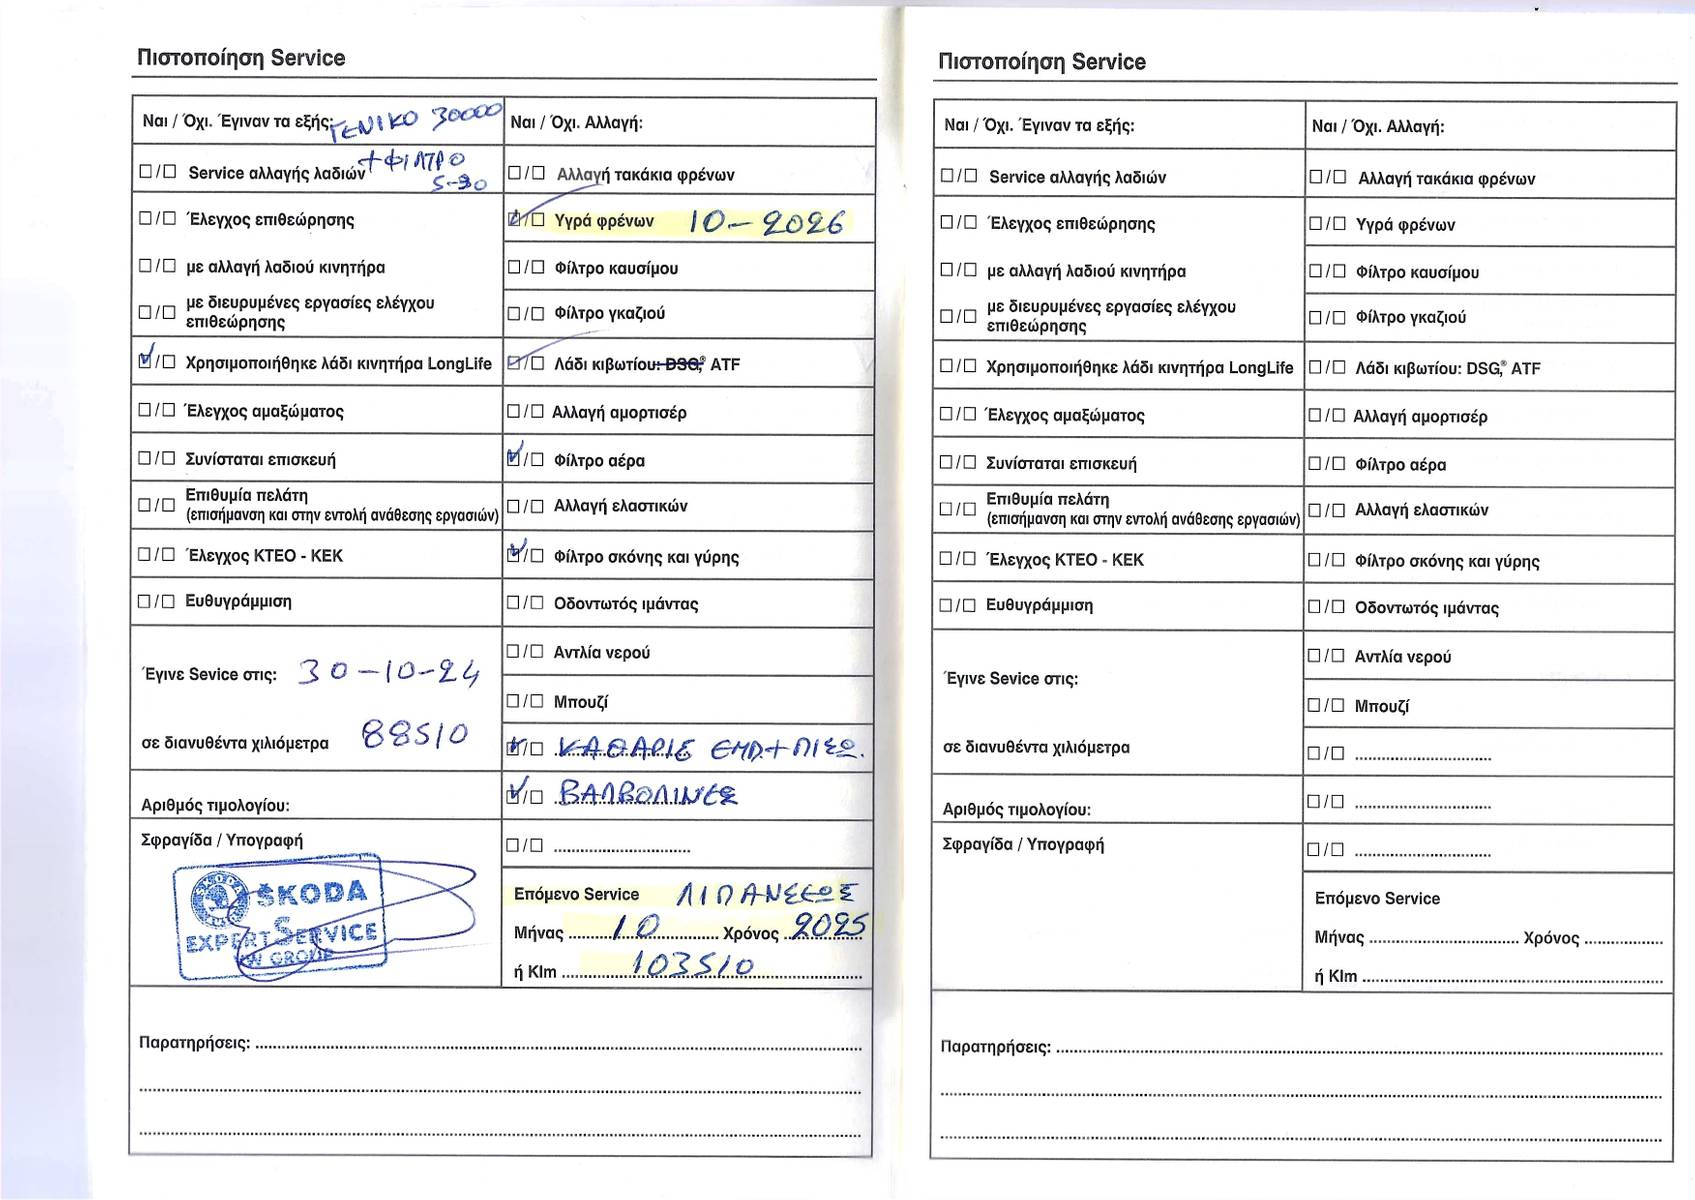 Πιστοποίηση Service
Ναι / Όχι. Έγιναν τα εξής: ΓΕΝΙΚΟ 30000
Service αλλαγής λαδιών +ΦΙΛΤΡΟ
5-30
Έλεγχος επιθεώρησης
με αλλαγή λαδιού κινητήρα
με διευρυμένες εργασίες ελέγχου
επιθεώρησης
Χρησιμοποιήθηκε λάδι κινητήρα LongLife
Έλεγχος αμαξώματος
Συνίσταται επισκευή
Επιθυμία πελάτη
(επισήμανση και στην εντολή ανάθεσης εργασιών)
Έλεγχος ΚΤΕΟ - ΚΕΚ
Ευθυγράμμιση
Έγινε Sevice στις: 30-10-24
σε διανυθέντα χιλιόμετρα 88510
Αριθμός τιμολογίου:
Σφραγίδα / Υπογραφή
ŠKODA
EXPERT SERVICE
VW GROUP
Ναι / Όχι. Αλλαγή:
Αλλαγή τακάκια φρένων
Υγρά φρένων 10-2026
Φίλτρο καυσίμου
Φίλτρο γκαζιού
Λάδι κιβωτίου: DSG,® ATF
Αλλαγή αμορτισέρ
Φίλτρο αέρα
Αλλαγή ελαστικών
Φίλτρο σκόνης και γύρης
Οδοντωτός ιμάντας
Αντλία νερού
Μπουζί
ΚΑΘΑΡΙΣ ΕΜΠ+ΠΙΣΩ.
ΒΑΛΒΟΛΙΝΕΣ
Επόμενο Service ΛΙΠΑΝΣΕΩΣ
Μήνας 10 Χρόνος 2025
ή Klm 103510
Παρατηρήσεις:
Πιστοποίηση Service
Ναι / Όχι. Έγιναν τα εξής:
Service αλλαγής λαδιών
Έλεγχος επιθεώρησης
με αλλαγή λαδιού κινητήρα
με διευρυμένες εργασίες ελέγχου
επιθεώρησης
Χρησιμοποιήθηκε λάδι κινητήρα LongLife
Έλεγχος αμαξώματος
Συνίσταται επισκευή
Επιθυμία πελάτη
(επισήμανση και στην εντολή ανάθεσης εργασιών)
Έλεγχος ΚΤΕΟ - ΚΕΚ
Ευθυγράμμιση
Έγινε Sevice στις:
σε διανυθέντα χιλιόμετρα
Αριθμός τιμολογίου:
Σφραγίδα / Υπογραφή
Ναι / Όχι. Αλλαγή:
Αλλαγή τακάκια φρένων
Υγρά φρένων
Φίλτρο καυσίμου
Φίλτρο γκαζιού
Λάδι κιβωτίου: DSG,® ATF
Αλλαγή αμορτισέρ
Φίλτρο αέρα
Αλλαγή ελαστικών
Φίλτρο σκόνης και γύρης
Οδοντωτός ιμάντας
Αντλία νερού
Μπουζί
Επόμενο Service
Μήνας Χρόνος
ή Klm
Παρατηρήσεις: